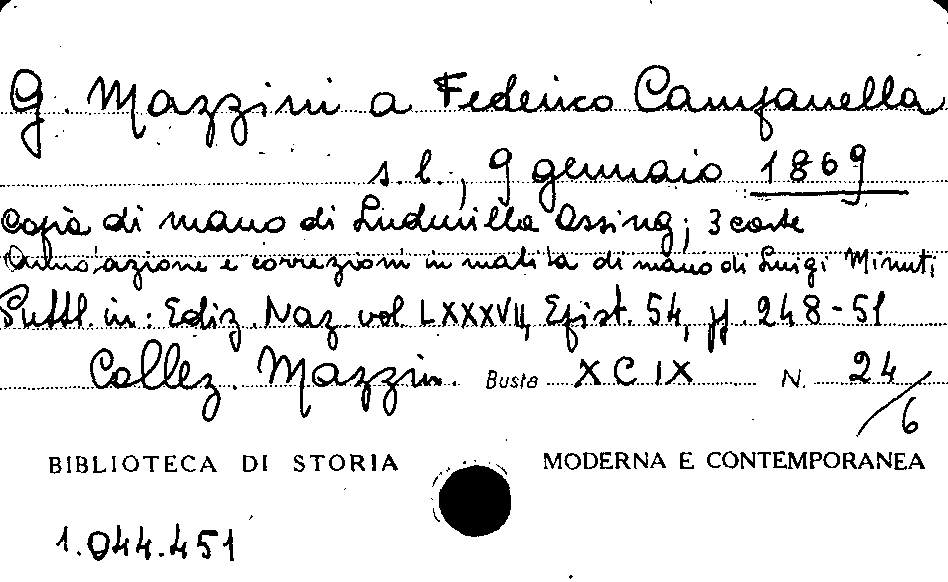 G. Mazzini a Federico Campanella
s.l., 9 gennaio 1869
Copia di mano di Ludmilla Assing; 3 carte
Annotazione e correzioni in matita di mano di Luigi Minuti
Pubbl. in: Ediz. Naz. vol LXXXVII, Epist. 54, pp. 248-51
Collez. Mazzin. Busta XCIX N. 24/6
BIBLIOTECA DI STORIA MODERNA E CONTEMPORANEA
1.044.451